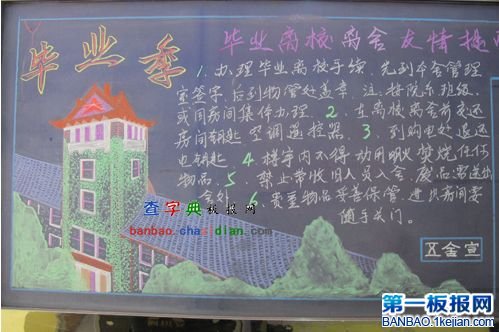 毕业季
毕业离校离舍友情提
1、办理毕业离校手续，先到本舍管理
室签字，后到物管处盖章。注：按院系班级
或同房间集体办理。2、在离校离舍前交还
房间钥匙、空调遥控器。3、到购电处退还
电钥匙。4、楼宇内不得动用明火焚烧任何
物品。5、禁止带收旧人员入舍，废品要送出
舍外。6、贵重物品妥善保管，进出房间要
随手关门。
五舍宣
查字典板报网
banbao.chazidian.com
第一板报网
BANBAO.1kejian.com